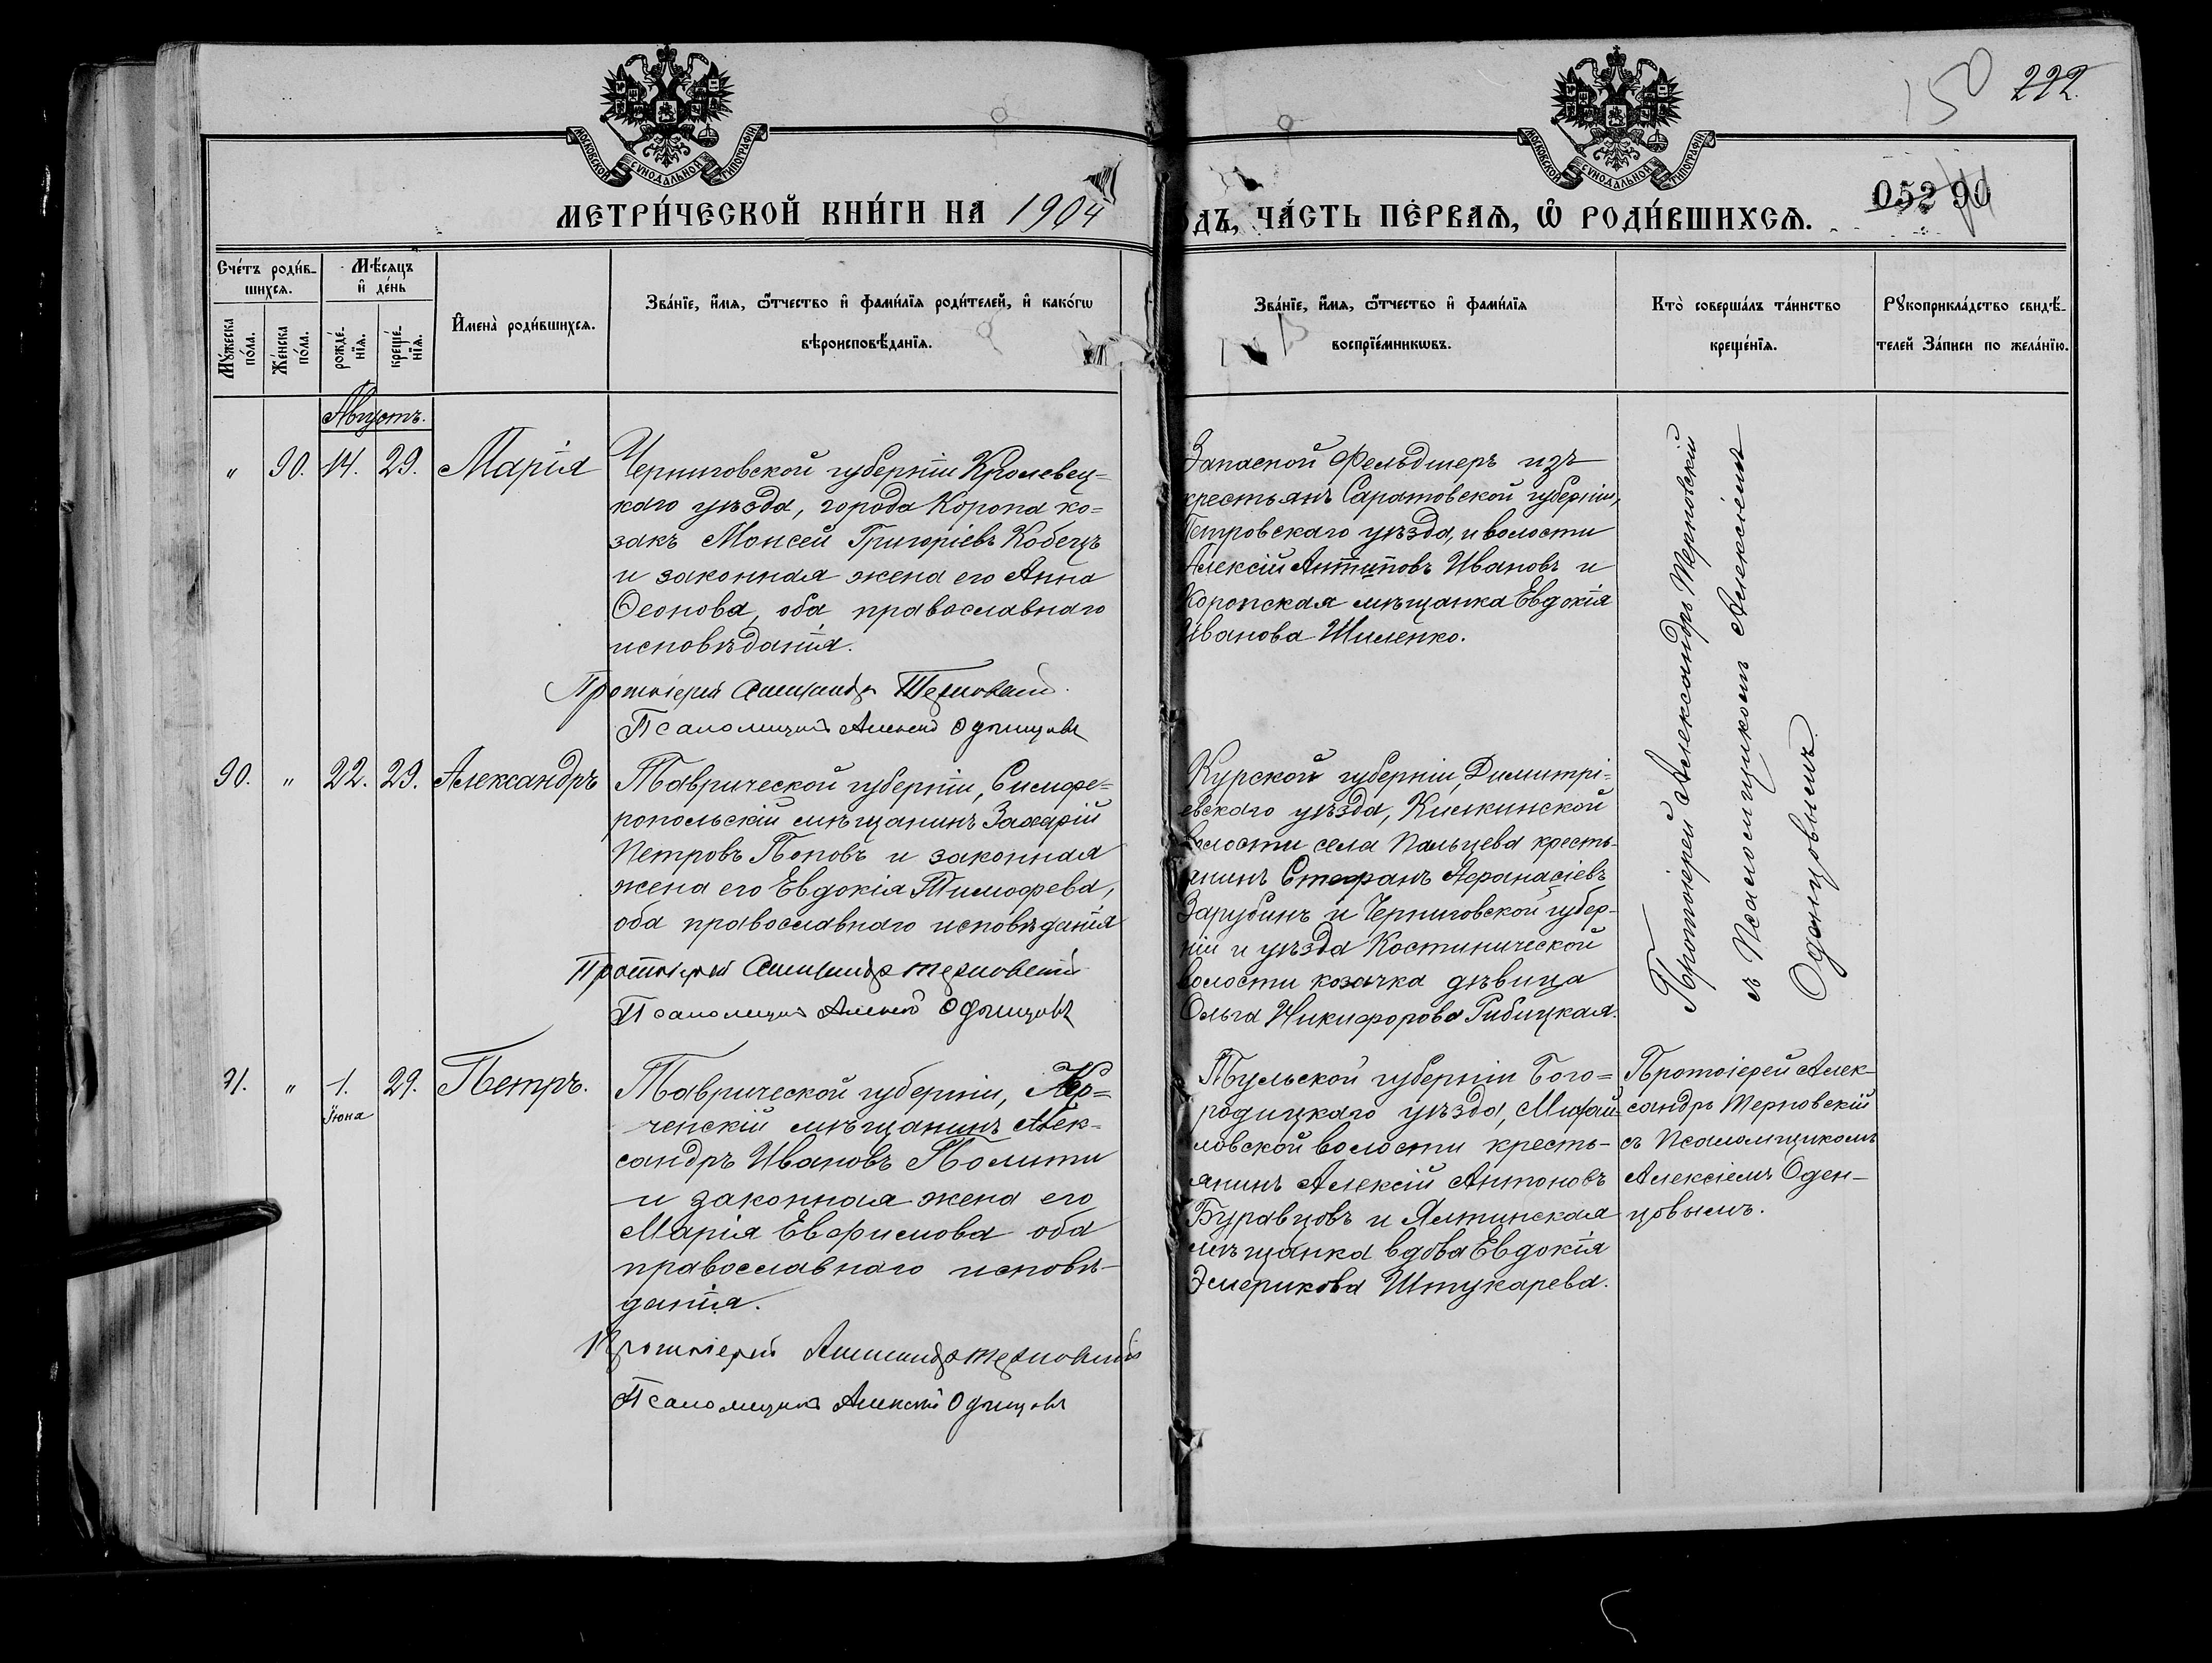 МОСКОВСКОЙ СУНОДАЛЬНОЙ ТИПОГРАФІИ
МОСКОВСКОЙ СУНОДАЛЬНОЙ ТИПОГРАФІИ
150
222.
052 90
МЕТРИ́ЧЕСКОЙ КНИ́ГИ НА 1904
ОДЪ, ЧА́СТЬ ПЕ́РВАѦ, Ѡ РОДИ́ВШИХСѦ.
Сче́тъ роди́в-
шихся.
Мѣ́сяцъ
и҆ де́нь
Мꙋ́жеска
по́ла.
Же́нска
по́ла.
рожде́-
нїя.
креще́-
нїя.
И҆мена̀ роди́вшихся.
Зва́нїе, и҆́мя, ѻ҆́тчество и҆ фами́лїя роди́телей, и҆ како́гѡ
вѣроисповѣ́данїя.
Зва́нїе, и҆́мя, ѻ҆́тчество и҆ фами́лїя
воспрїе́мникѡвъ.
Кто̀ соверша́лъ та́инство
креще́нїя.
Рꙋкоприкла́дство свидѣ́-
телей За́писи по жела́нїю.
Августъ.
„ 90. 14. 29. Марія
Черниговской губерніи Кролевец=
каго уѣзда, города Коропа ко=
закъ Моисей Григоріевъ Кобецъ
и законная жена его Анна
Ѳеонова, оба православнаго
исповѣданія.
Протоіерей Александръ Терновскій
Псаломщикъ Алексій Одинцовъ
Запасной Фельдшеръ изъ
крестьянъ Саратовской губерніи,
Петровскаго уѣзда, и волости
Алексій Антиповъ Ивановъ и
Коропская мѣщанка Евдокія
Иванова Шиленко.
Протоіерей Александръ Терновскій
съ Псаломщикомъ Алексіемъ
Оденцовымъ.
90. „ 22. 29. Александръ
Таврической губерніи, Симфе=
ропольскій мѣщанинъ Захарій
Петровъ Поповъ и законная
жена его Евдокія Тимофева,
оба православнаго исповѣданія
Протоіерей Александръ Терновскій
Псаломщикъ Алексій Одинцовъ
Курской губерніи, Димитрі=
евскаго уѣзда, Килкинской
волости села Пальцева кресть-
янинъ Стефанъ Аѳанасіевъ
Зарубинъ и Черниговской губер-
ніи и уѣзда Костинической
волости козачка дѣвица
Ольга Никифорова Рибицкая.
91. „ 1. 29. Петръ.
Іюна
Таврической губерніи, Кер=
ченскій мѣщанинъ Алек-
сандръ Ивановъ Полити
и законная жена его
Марія Евфимова оба
православнаго исповѣ-
данія.
Протоіерей Александръ Терновскій
Псаломщикъ Алексій Одинцовъ
Тульской губерніи Бого=
родицкаго уѣзда, Михай-
ловской волости кресть-
янинъ Алексій Антоновъ
Буравцовъ и Ялтинская
мѣщанка вдова Евдокія
Эмерикова Штукарева.
Протоіерей Алек-
сандръ Терновскій
съ Псаломщикомъ
Алексіемъ Оден-
цовымъ.